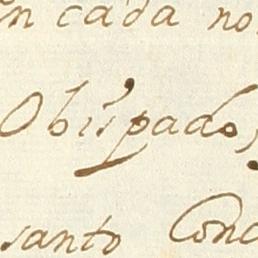 en cada no
Obispado,
santo Conc